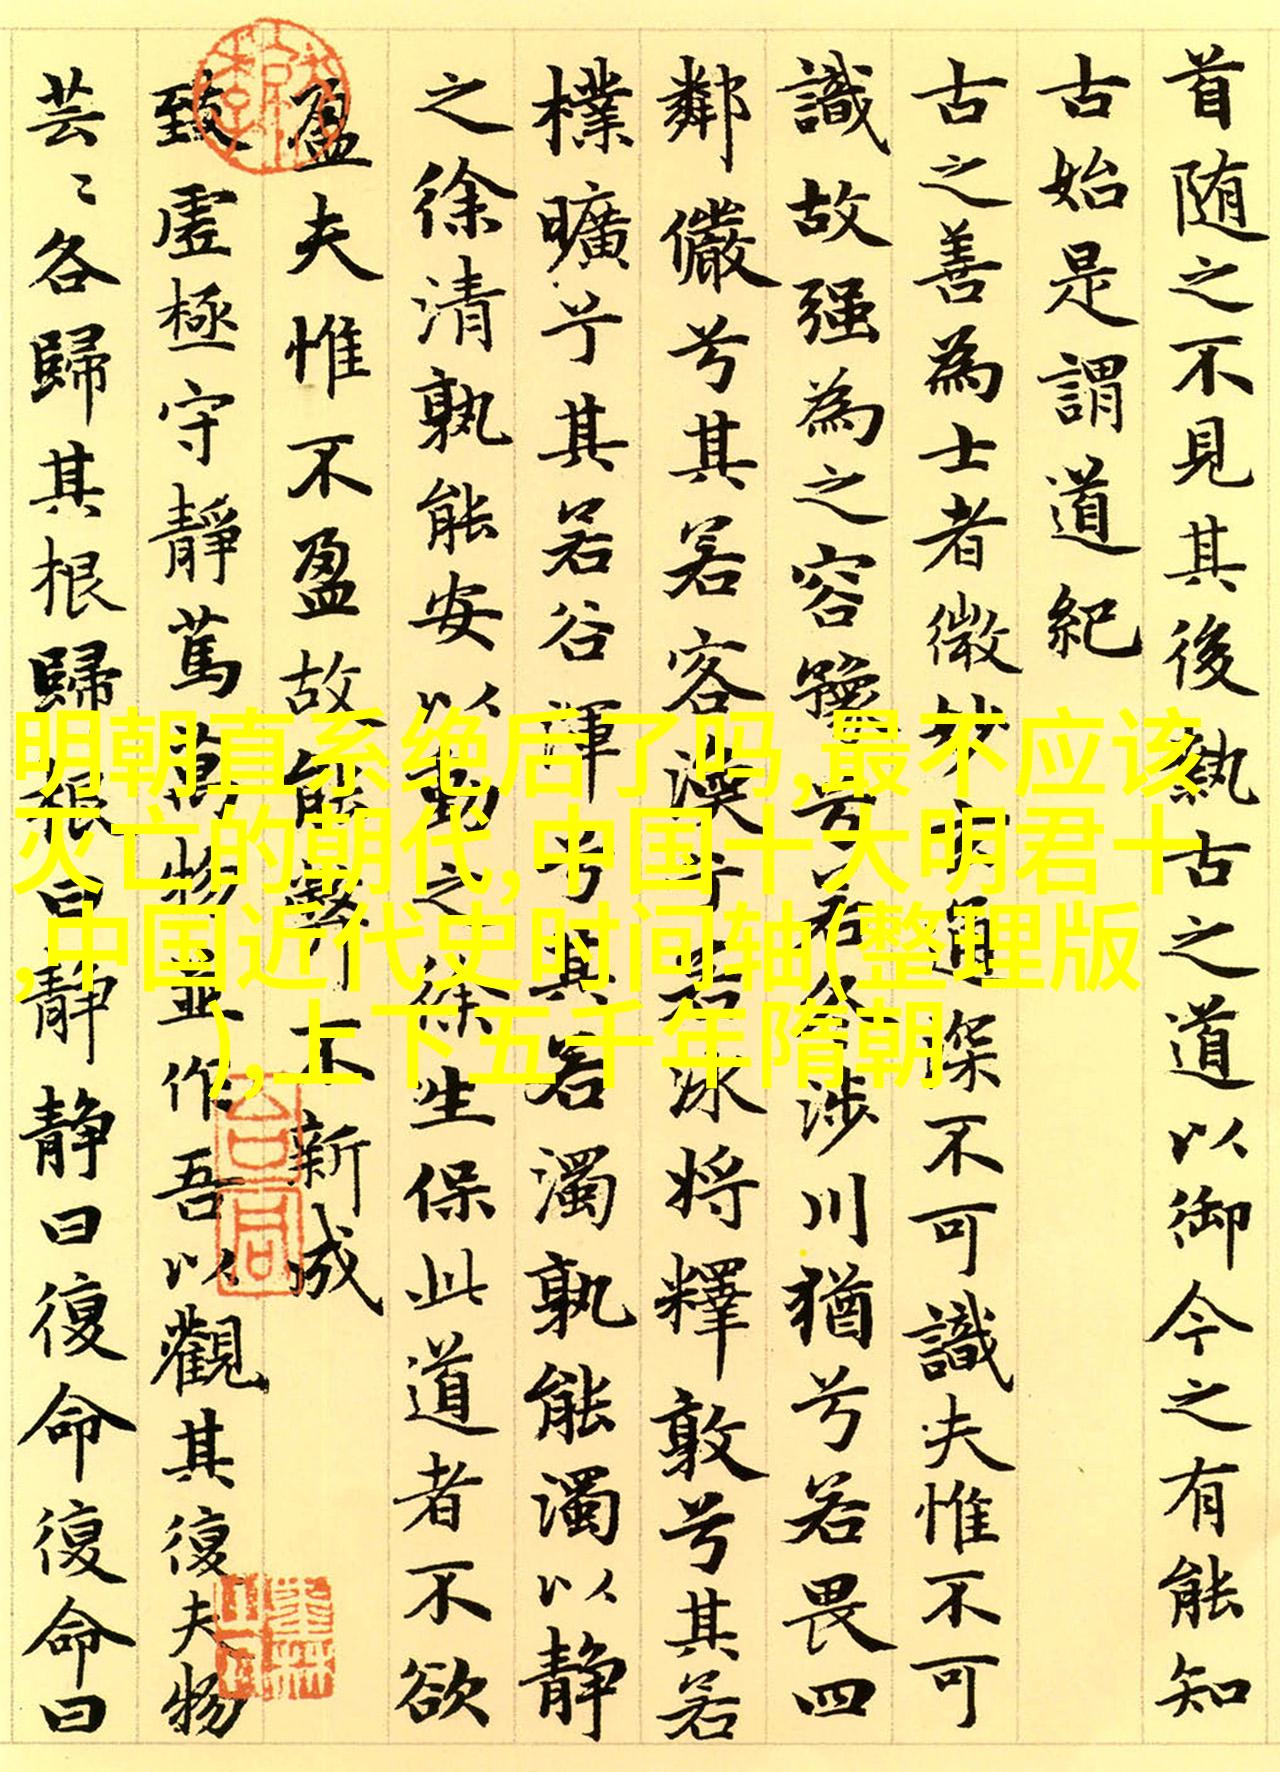 首随之不見其後執古之道以御今之有能知
古始是謂道紀
古之善為士者微妙玄通深不可識夫惟不可
識故强為之容豫兮若冬涉川猶兮若畏四
鄰儼兮其若客渙兮若冰將釋敦兮其若
樸曠兮其若谷渾兮其若濁孰能濁以静
之徐清孰能安以動之徐生保此道者不欲
盈夫惟不盈故能弊不新成
致虚極守靜篤萬物並作吾以觀其復夫物
芸〻各歸其根歸根曰靜静曰復命復命曰
明朝直系绝后了吗,最不应该
灭亡的朝代,中国十大明君十
,中国近代史时间轴(整理版
),上下五千年隋朝